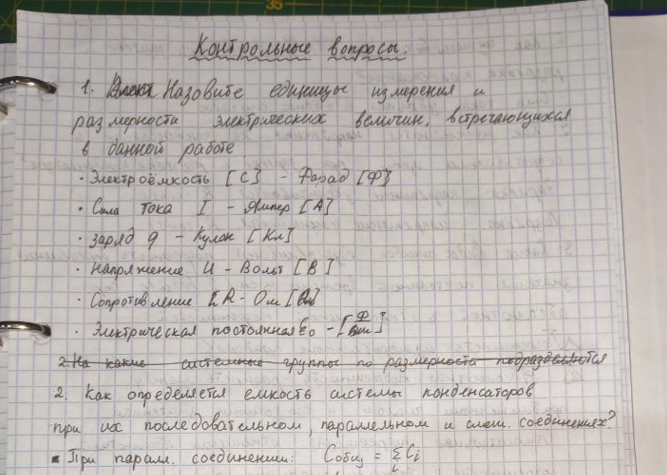 Контрольные вопросы.
1. Назовите единицы измерения и
размерности электрических величин, встречающихся
в данной работе
• Электроёмкость [C] - Фарад [Ф]
• Сила тока I - Ампер [А]
• Заряд q - Кулон [Кл]
• Напряжение U - Вольт [В]
• Сопротивление R - Ом [Ом]
• Электрическая постоянная ε₀ - [Ф/м]
2. На какие системные группы по размерности подразделяются
2. Как определяется емкость системы конденсаторов
при их последовательном, параллельном и смеш. соединениях?
• При парал. соединении: Cобщ = Σ Ci
i